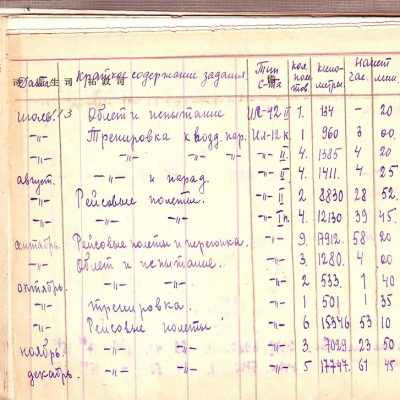 Дата. Краткое содержание задания. Тип с-та кол. полетов. кило-метры. Налет час. мин.
июль. 113 Облет и испытание ИЛ-12 II 1. 134 –. 20
-〃- Тренировка к возд. пар. Ил-12 к. 1 960 3 00.
-〃- -〃- -〃- -〃- -〃- II. 4. 1385 4 20
август. -〃- и парад. -〃- II. 4. 1411. 4 25
-〃- Рейсовые полеты. -〃- II 2 8830 28 52.
-〃- -〃- -〃- -〃- Iп. 4. 12130 39 45.
сентябрь. Рейсовые полеты и перегонка. -〃- 9. 17912. 58 20
-〃- Облет и испытание. -〃- 3. 1280. 4 00
октябрь. -〃- -〃- -〃- 2 533. 1 40
-〃- тренировка. -〃- 1 501 1 35
-〃- Рейсовые полеты -〃- 6 15346 53 10
ноябрь. -〃- -〃- -〃- 3. 7029. 23 50
декабрь. -〃- -〃- -〃- 5 17747. 61 45